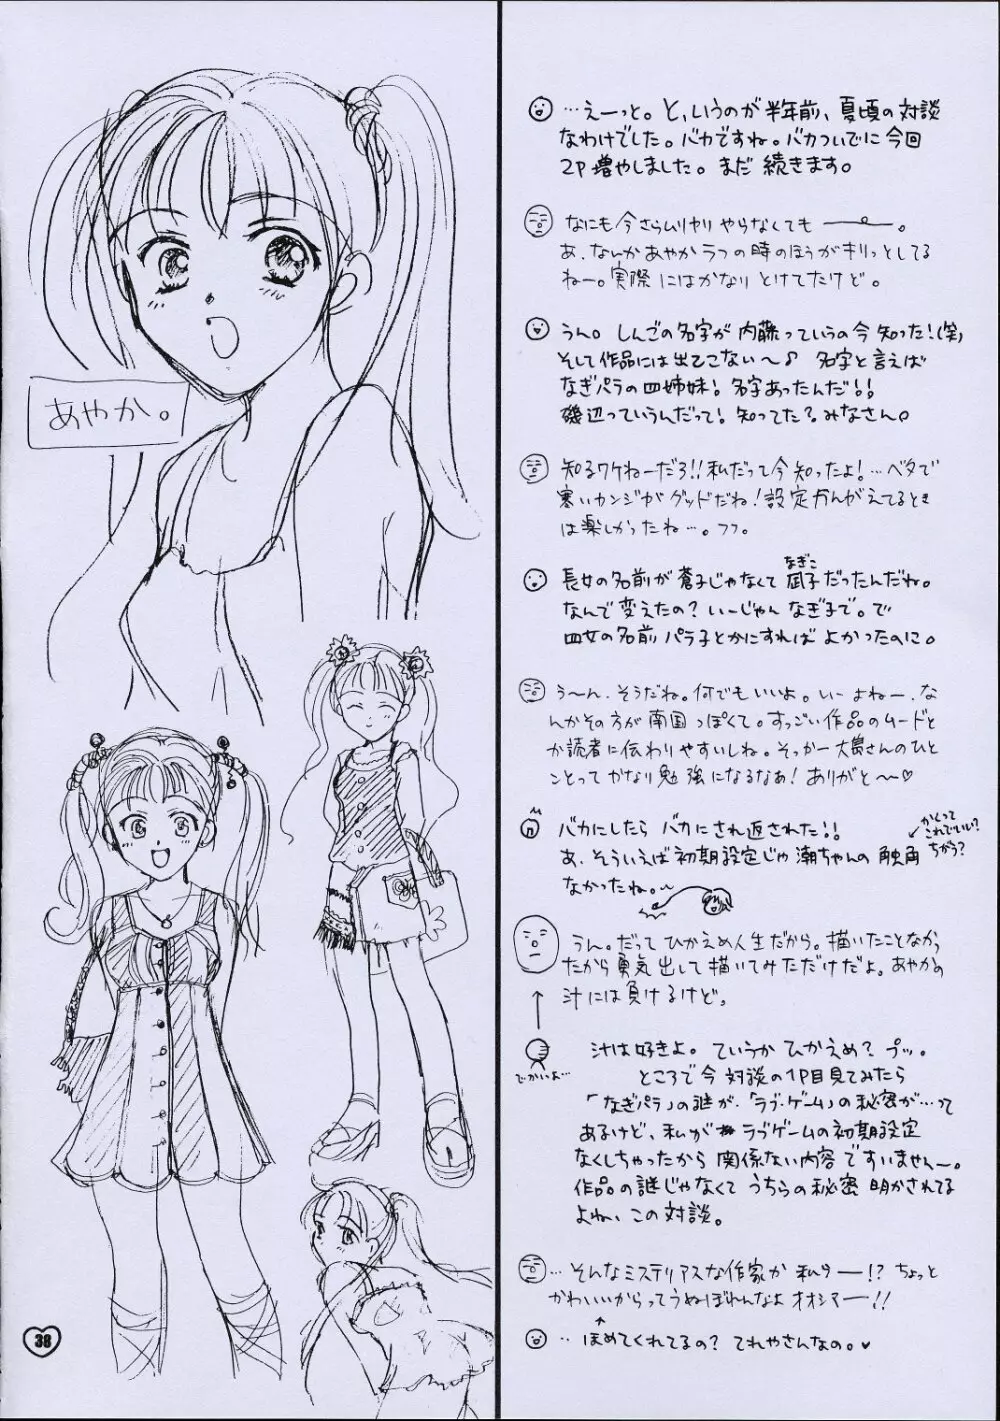 あやか。
38
…えーっと。と、いうのが半年前、夏頃の対談
なわけでした。バカですね。バカついでに今回
2P増やしました。まだ続きます。
なにも今さらムリヤリやらなくても――。
あ、なんかあやかラフの時のほうがキリッとしてる
ねー。実際にはかなりとけてたけど。
うん。しんごの名字が内藤っていうの今知った!(笑)
そして作品には出てこない〜♪ 名字と言えば
なぎパラの四姉妹!名字あったんだ!!
磯辺っていうんだって!知ってた?みなさん。
知るワケねーだろ!!私だって今知ったよ!…ベタで
寒いカンジがグッドだね!設定かんがえてるとき
は楽しかったね…。フフ。
なぎこ
長女の名前が蒼子じゃなくて凪子だったんだね。
なんで変えたの?いーじゃんなぎ子で。で
四女の名前パラ子とかにすればよかったのに。
う〜ん、そうだね。何でもいいよ。いーよねー、な
んかその方が南国っぽくて。すっごい作品のムードと
か読者に伝わりやすいしね。そっかー大島さんのひと
ことってかなり勉強になるなあ!ありがと〜♡
バカにしたらバカにされ返された!!
あ、そういえば初期設定じゃ潮ちゃんの触角
なかったね。〜
かくって
これでいい?
ちがう?
うん。だってひかえめ人生だから。描いたことなかっ
たから勇気出して描いてみただけだよ。あやかの
汁には負けるけど。
でかいよ…
汁は好きよ。ていうかひかえめ?プッ。
ところで今対談の1P目見てみたら
「なぎパラ」の謎が、「ラブ・ゲーム」の秘密が…って
あるけど、私がラブゲームの初期設定
なくしちゃったから関係ない内容ですいませんー。
作品の謎じゃなくてうちらの秘密明かされてる
よね、この対談。
…そんなミステリアスな作家か私ら――!?ちょっと
かわいいからってうぬぼれんなよオオシマ――!!
…ほめてくれてるの?てれやさんなの。♥